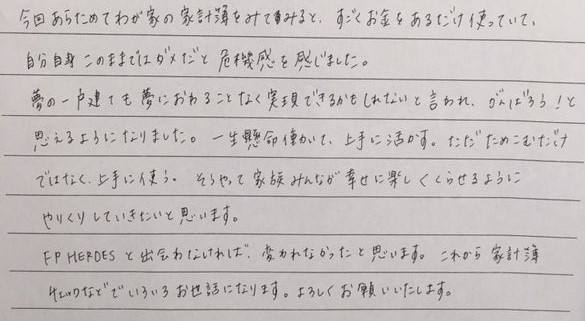 今回あらためてわが家の家計簿をみてみると、すごくお金をあるだけ使っていて、
自分自身このままではダメだと危機感を感じました。
夢の一戸建ても夢におわることなく実現できるかもしれないと言われ、がんばろう!と
思えるようになりました。一生懸命働いて、上手に活かす。ただためこむだけ
ではなく、上手に使う。そうやって家族みんなが幸せに楽しくくらせるように
やりくりしていきたいと思います。
FP HEROESと出会わなければ、変われなかったと思います。これから家計簿
チェックなどでいろいろお世話になります。よろしくお願いいたします。